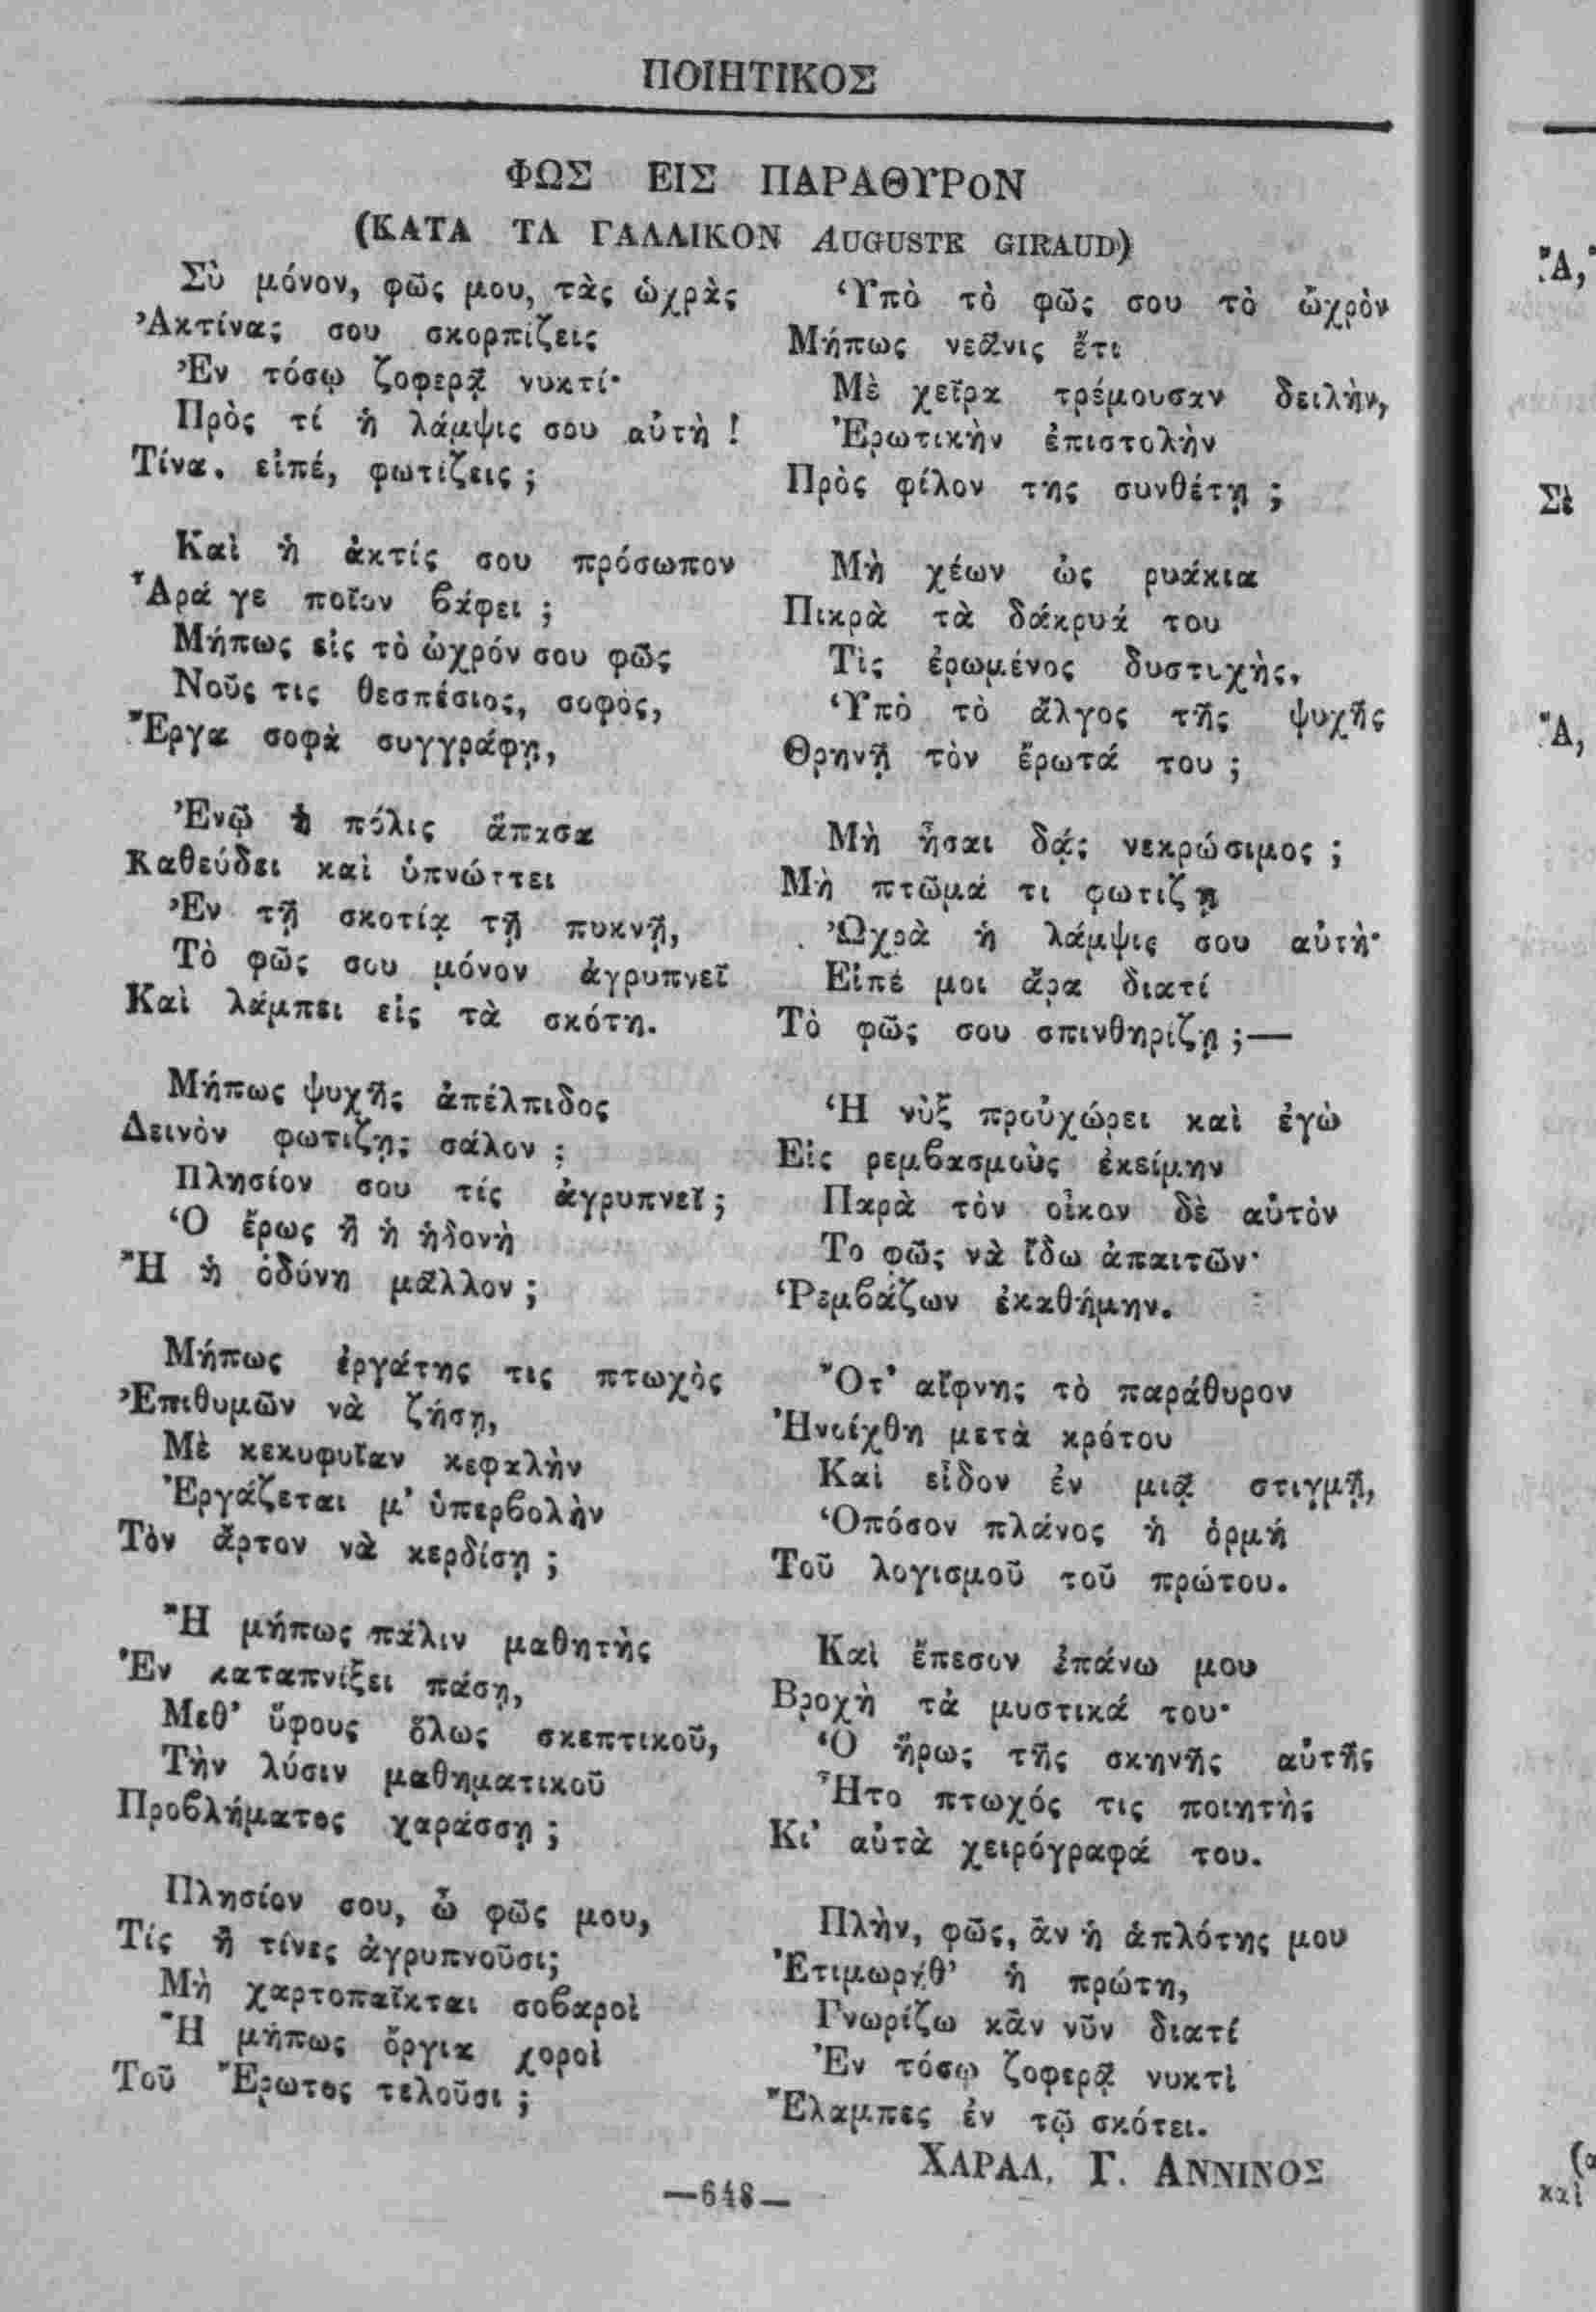 ΠΟΙΗΤΙΚΟΣ
ΦΩΣ ΕΙΣ ΠΑΡΑΘΥΡΟΝ
(ΚΑΤΑ ΤΑ ΓΑΛΛΙΚΟΝ AUGUSTE GIRAUD)
Σὺ μόνον, φῶς μου, τὰς ὠχρὰς
Ἀκτίνας σου σκορπίζεις
Ἐν τόσῳ ζοφερᾷ νυκτί·
Πρὸς τί ἡ λάμψις σου αὐτὴ !
Τίνα. εἰπέ, φωτίζεις ;
Καὶ ἡ ἀκτίς σου πρόσωπον
Ἆρά γε ποῖον βάφει ;
Μήπως εἰς τὸ ὠχρόν σου φῶς
Νοῦς τις θεσπέσιος, σοφός,
Ἔργα σοφὰ συγγράφῃ,
Ἐνῷ ἡ πόλις ἅπασα
Καθεύδει καὶ ὑπνώττει
Ἐν τῇ σκοτίᾳ τῇ πυκνῇ,
Τὸ φῶς σου μόνον ἀγρυπνεῖ
Καὶ λάμπει εἰς τὰ σκότη.
Μήπως ψυχῆς ἀπέλπιδος
Δεινὸν φωτίζῃς σάλον ;
Πλησίον σου τίς ἀγρυπνεῖ ;
Ὁ ἔρως ἢ ἡ ἡδονὴ
Ἢ ἡ ὀδύνη μᾶλλον ;
Μήπως ἐργάτης τις πτωχὸς
Ἐπιθυμῶν νὰ ζήσῃ,
Μὲ κεκυφυῖαν κεφαλὴν
Ἐργάζεται μ' ὑπερβολὴν
Τὸν ἄρτον νὰ κερδίσῃ ;
Ἢ μήπως πάλιν μαθητὴς
Ἐν καταπνίξει πάσῃ,
Μεθ' ὕφους ὅλως σκεπτικοῦ,
Τὴν λύσιν μαθηματικοῦ
Προβλήματος χαράσσῃ ;
Πλησίον σου, ὦ φῶς μου,
Τίς ἢ τίνες ἀγρυπνοῦσι;
Μὴ χαρτοπαῖκται σοβαροὶ
Ἢ μήπως ὄργια χοροὶ
Τοῦ Ἔρωτος τελοῦσι ;
Ὑπὸ τὸ φῶς σου τὸ ὠχρὸν
Μήπως νεᾶνις ἔτι
Μὲ χεῖρα τρέμουσαν δειλὴν,
Ἐρωτικὴν ἐπιστολὴν
Πρὸς φίλον της συνθέτῃ ;
Μὴ χέων ὡς ρυάκια
Πικρὰ τὰ δάκρυά του
Τὶς ἐρωμένος δυστυχὴς,
Ὑπὸ τὸ ἄλγος τῆς ψυχῆς
Θρηνῇ τὸν ἔρωτά του ;
Μὴ ἦσαι δᾲς νεκρώσιμος ;
Μὴ πτῶμά τι φωτίζῃ
Ὠχρὰ ἡ λάμψις σου αὐτὴ·
Εἰπέ μοι ἄρα διατί
Τὸ φῶς σου σπινθηρίζῃ ;—
Ἡ νὺξ προὐχώρει καὶ ἐγὼ
Εἰς ρεμβασμοὺς ἐκείμην
Παρὰ τὸν οἶκον δὲ αὐτὸν
Το φῶς νὰ ἴδω ἀπαιτῶν·
Ῥεμβάζων ἐκαθήμην.
Ὅτ' αἴφνης τὸ παράθυρον
Ἠνοίχθη μετὰ κρότου
Καὶ εἶδον ἐν μιᾷ στιγμῇ,
Ὁπόσον πλάνος ἡ ὁρμή
Τοῦ λογισμοῦ τοῦ πρώτου.
Καὶ ἔπεσον ἐπάνω μου
Βροχὴ τὰ μυστικά του·
Ὁ ἥρως τῆς σκηνῆς αὐτῆς
Ἦτο πτωχός τις ποιητὴς
Κι' αὐτὰ χειρόγραφά του.
Πλὴν, φῶς, ἂν ἡ ἁπλότης μου
Ἐτιμωρήθ' ἡ πρώτη,
Γνωρίζω κἂν νῦν διατί
Ἐν τόσῳ ζοφερᾷ νυκτὶ
Ἔλαμπες ἐν τῷ σκότει.
ΧΑΡΑΛ. Γ. ΑΝΝΙΝΟΣ
—648—